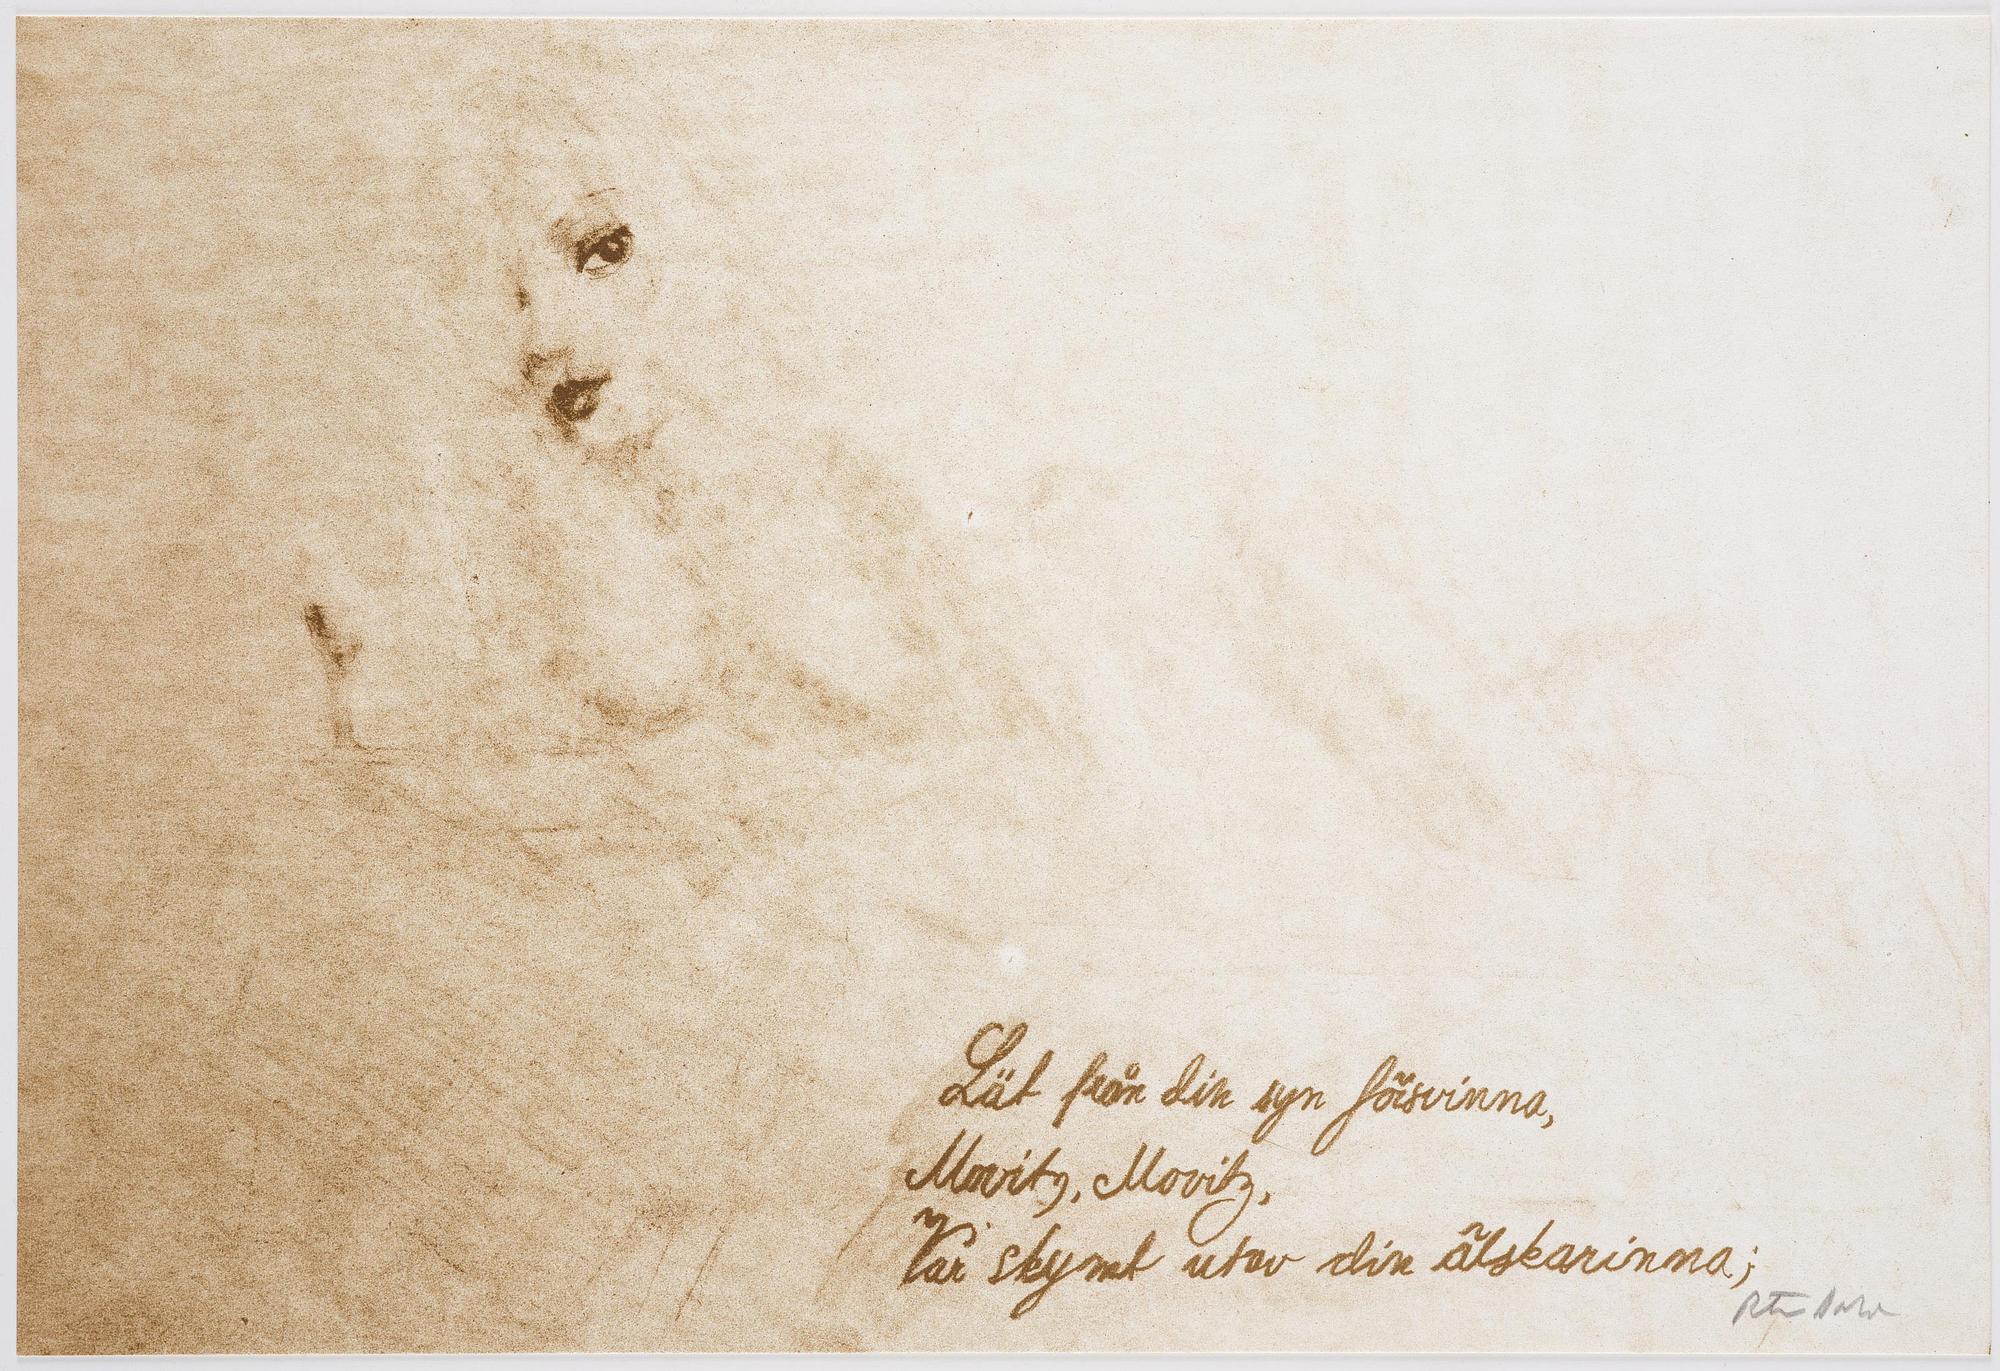 Lät från din syn försvinna,
Movitz, Movitz,
Var skymt utav din älskarinna;
Peter Dahl